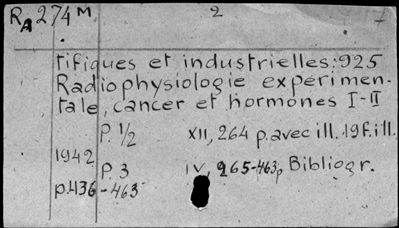 RA 274 M 2
tifiques et industrielles:925
Radiophysiologie expérimen-
tale, cancer et hormones I-II
P. 1/2 XII, 264 p. avec ill. 19 f. ill.
1942
P. 3 IV, 265-463 p Bibliogr.
p. 436-463